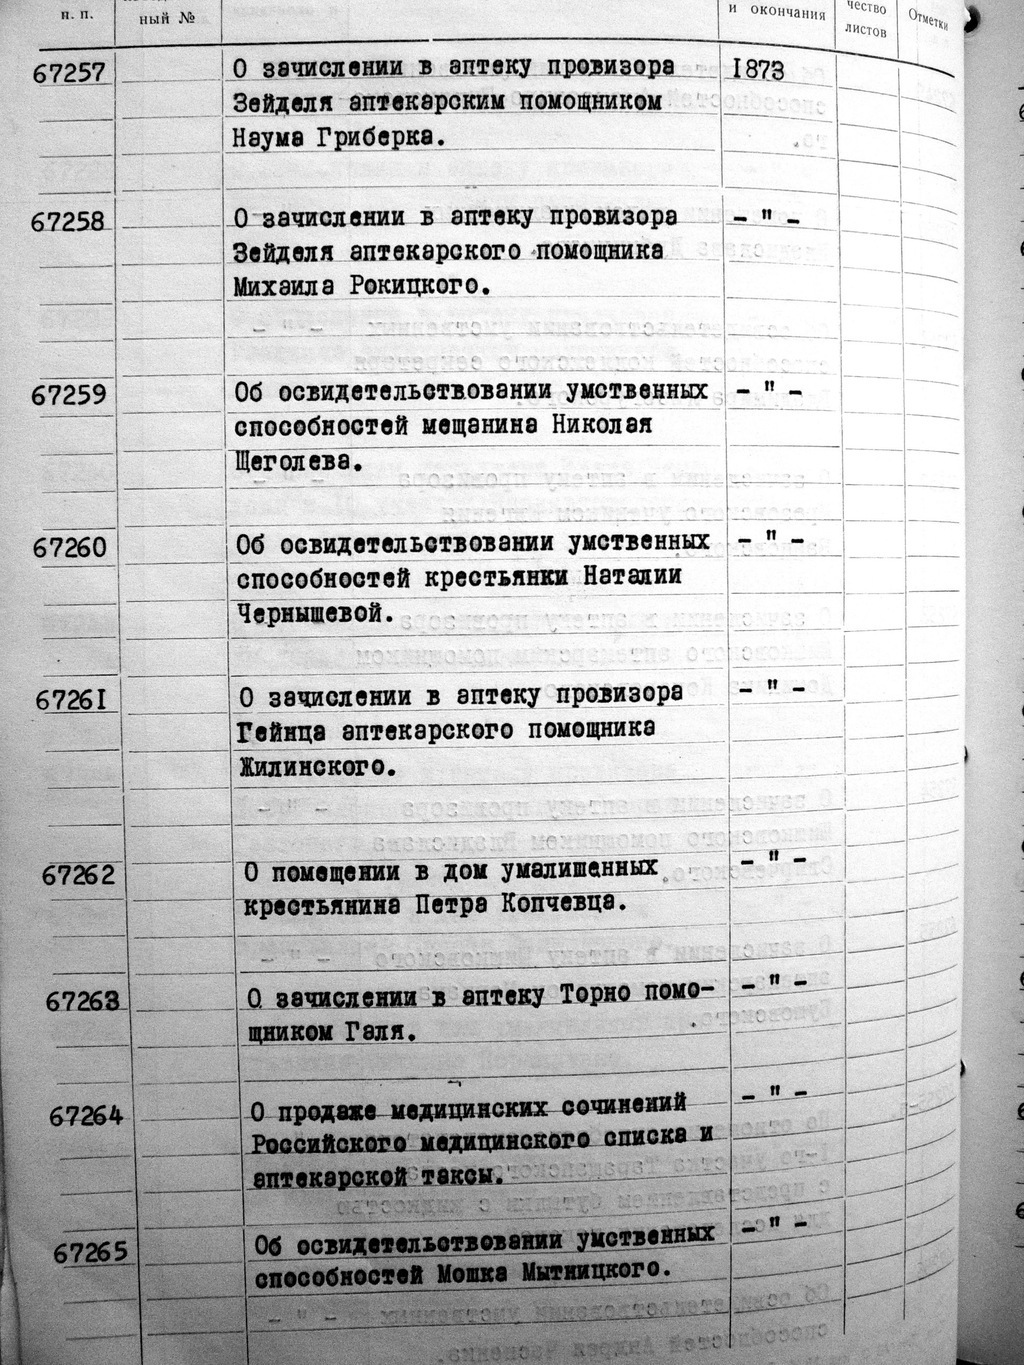 п. п.
ный №
и окончания
чество
листов
Отметки
67257 О зачислении в аптеку провизора 1873
Зейделя аптекарским помощником
Наума Гриберка.
67258 О зачислении в аптеку провизора - " -
Зейделя аптекарского помощника
Михаила Рокицкого.
67259 Об освидетельствовании умственных - " -
способностей мещанина Николая
Щеголева.
67260 Об освидетельствовании умственных - " -
способностей крестьянки Наталии
Чернышевой.
67261 О зачислении в аптеку провизора - " -
Гейнца аптекарского помощника
Жилинского.
67262 О помещении в дом умалишенных - " -
крестьянина Петра Копчевца.
67263 О зачислении в аптеку Торно помо- - " -
щником Галя.
67264 О продаже медицинских сочинений - " -
Российского медицинского списка и
аптекарской таксы.
67265 Об освидетельствовании умственных - " -
способностей Мошка Мытницкого.